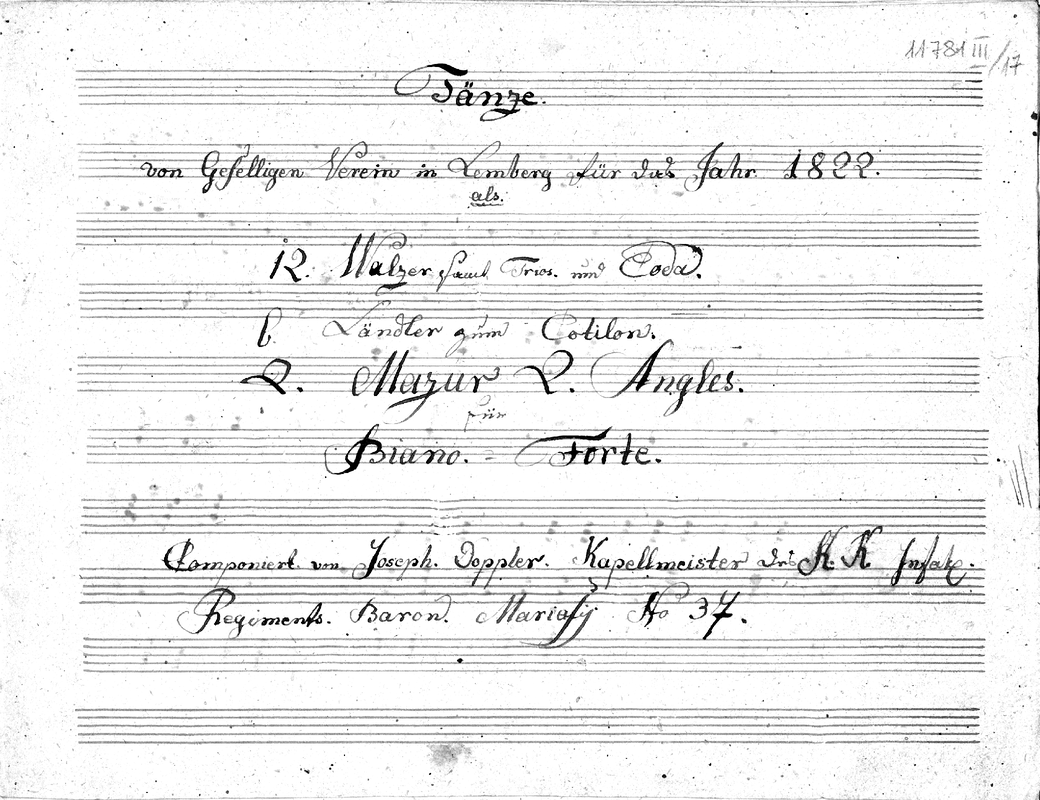 11781 III/17
Tänze.
von Geselligen Verein in Lemberg für das Jahr 1822.
als.
12. Walzer samt Trios. und Coda.
6. Ländler zum Cotilon.
2. Mazur 2. Angles.
für
Biano. = Forte.
Componiert von Joseph. Doppler. Kapellmeister des K. K. Infant.
Regiments. Baron. Mariasÿ No 37.